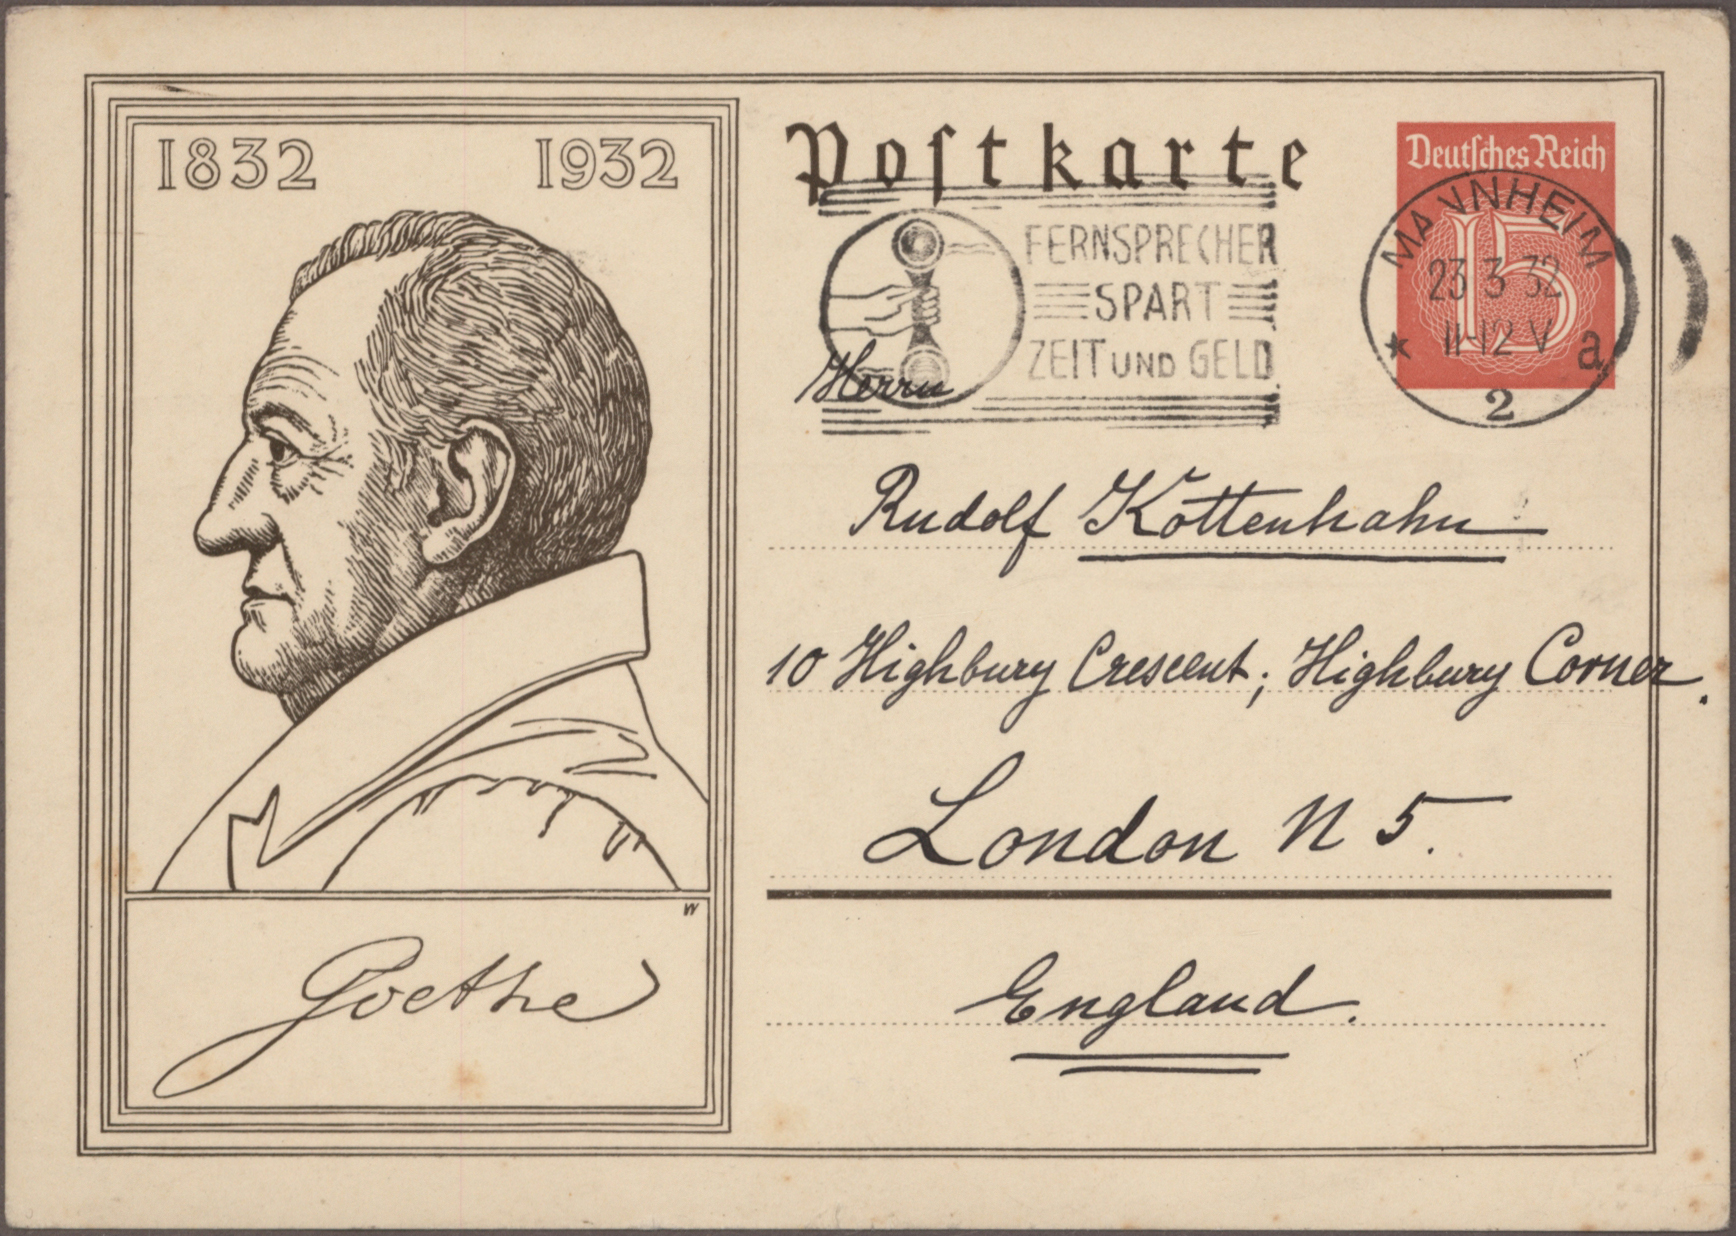 1832 1932
Goethe
W
Postkarte
Deutsches Reich
15
MANNHEIM
23.3.32
11-12 V
* a
2
FERNSPRECHER
SPART
ZEIT UND GELD
Herrn
Rudolf Kottenhahn
10 Highbury Crescent; Highbury Corner.
London N 5.
England.